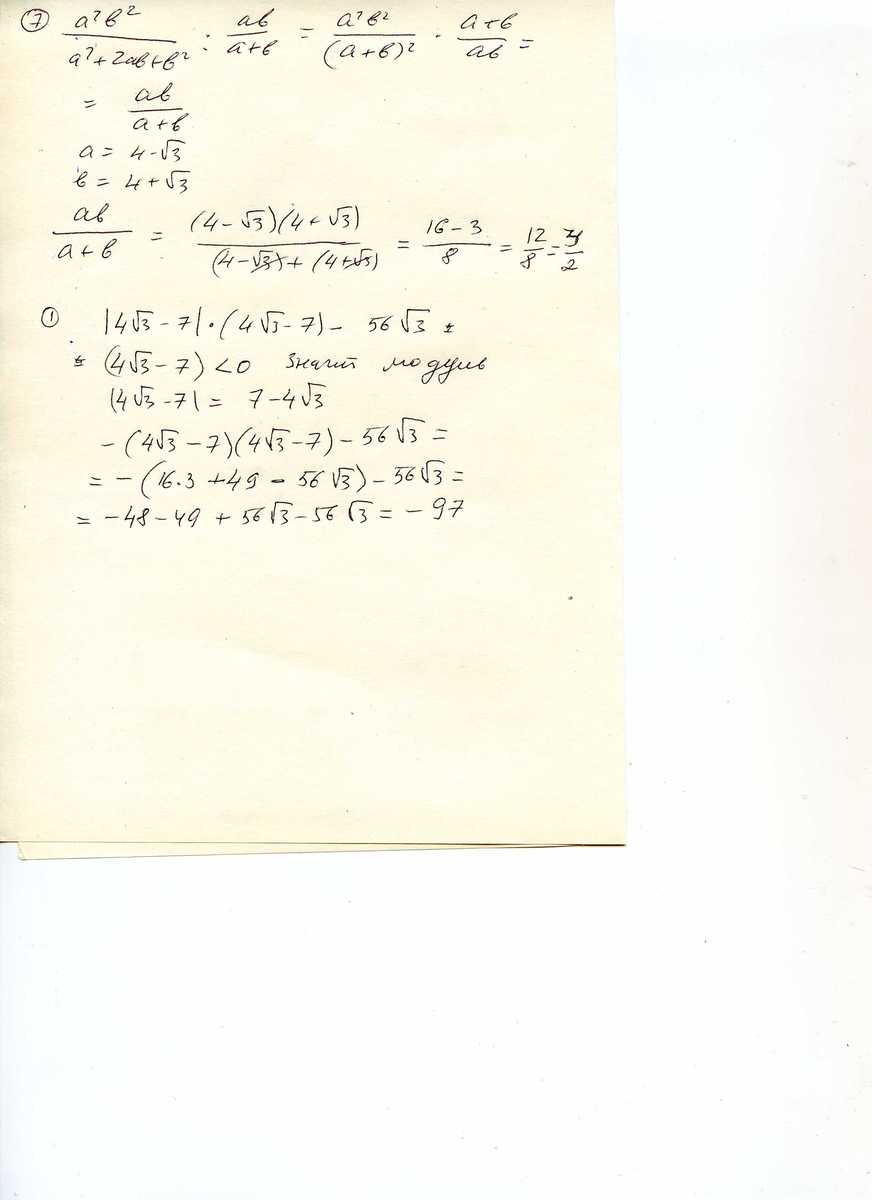 ⑦ a²b²/(a²+2ab+b²) : ab/(a+b) = a²b²/(a+b)² · (a+b)/ab =
= ab/(a+b)
a = 4-√3
b = 4+√3
ab/(a+b) = (4-√3)(4+√3)/((4-√3)+(4+√3)) = (16-3)/8 = 12/8 = 3/2
① |4√3-7|·(4√3-7) - 56√3 =
= (4√3-7) <0 значит модуль
|4√3-7| = 7-4√3
-(4√3-7)(4√3-7)-56√3 =
= -(16·3+49-56√3)-56√3 =
= -48-49+56√3-56√3 = -97